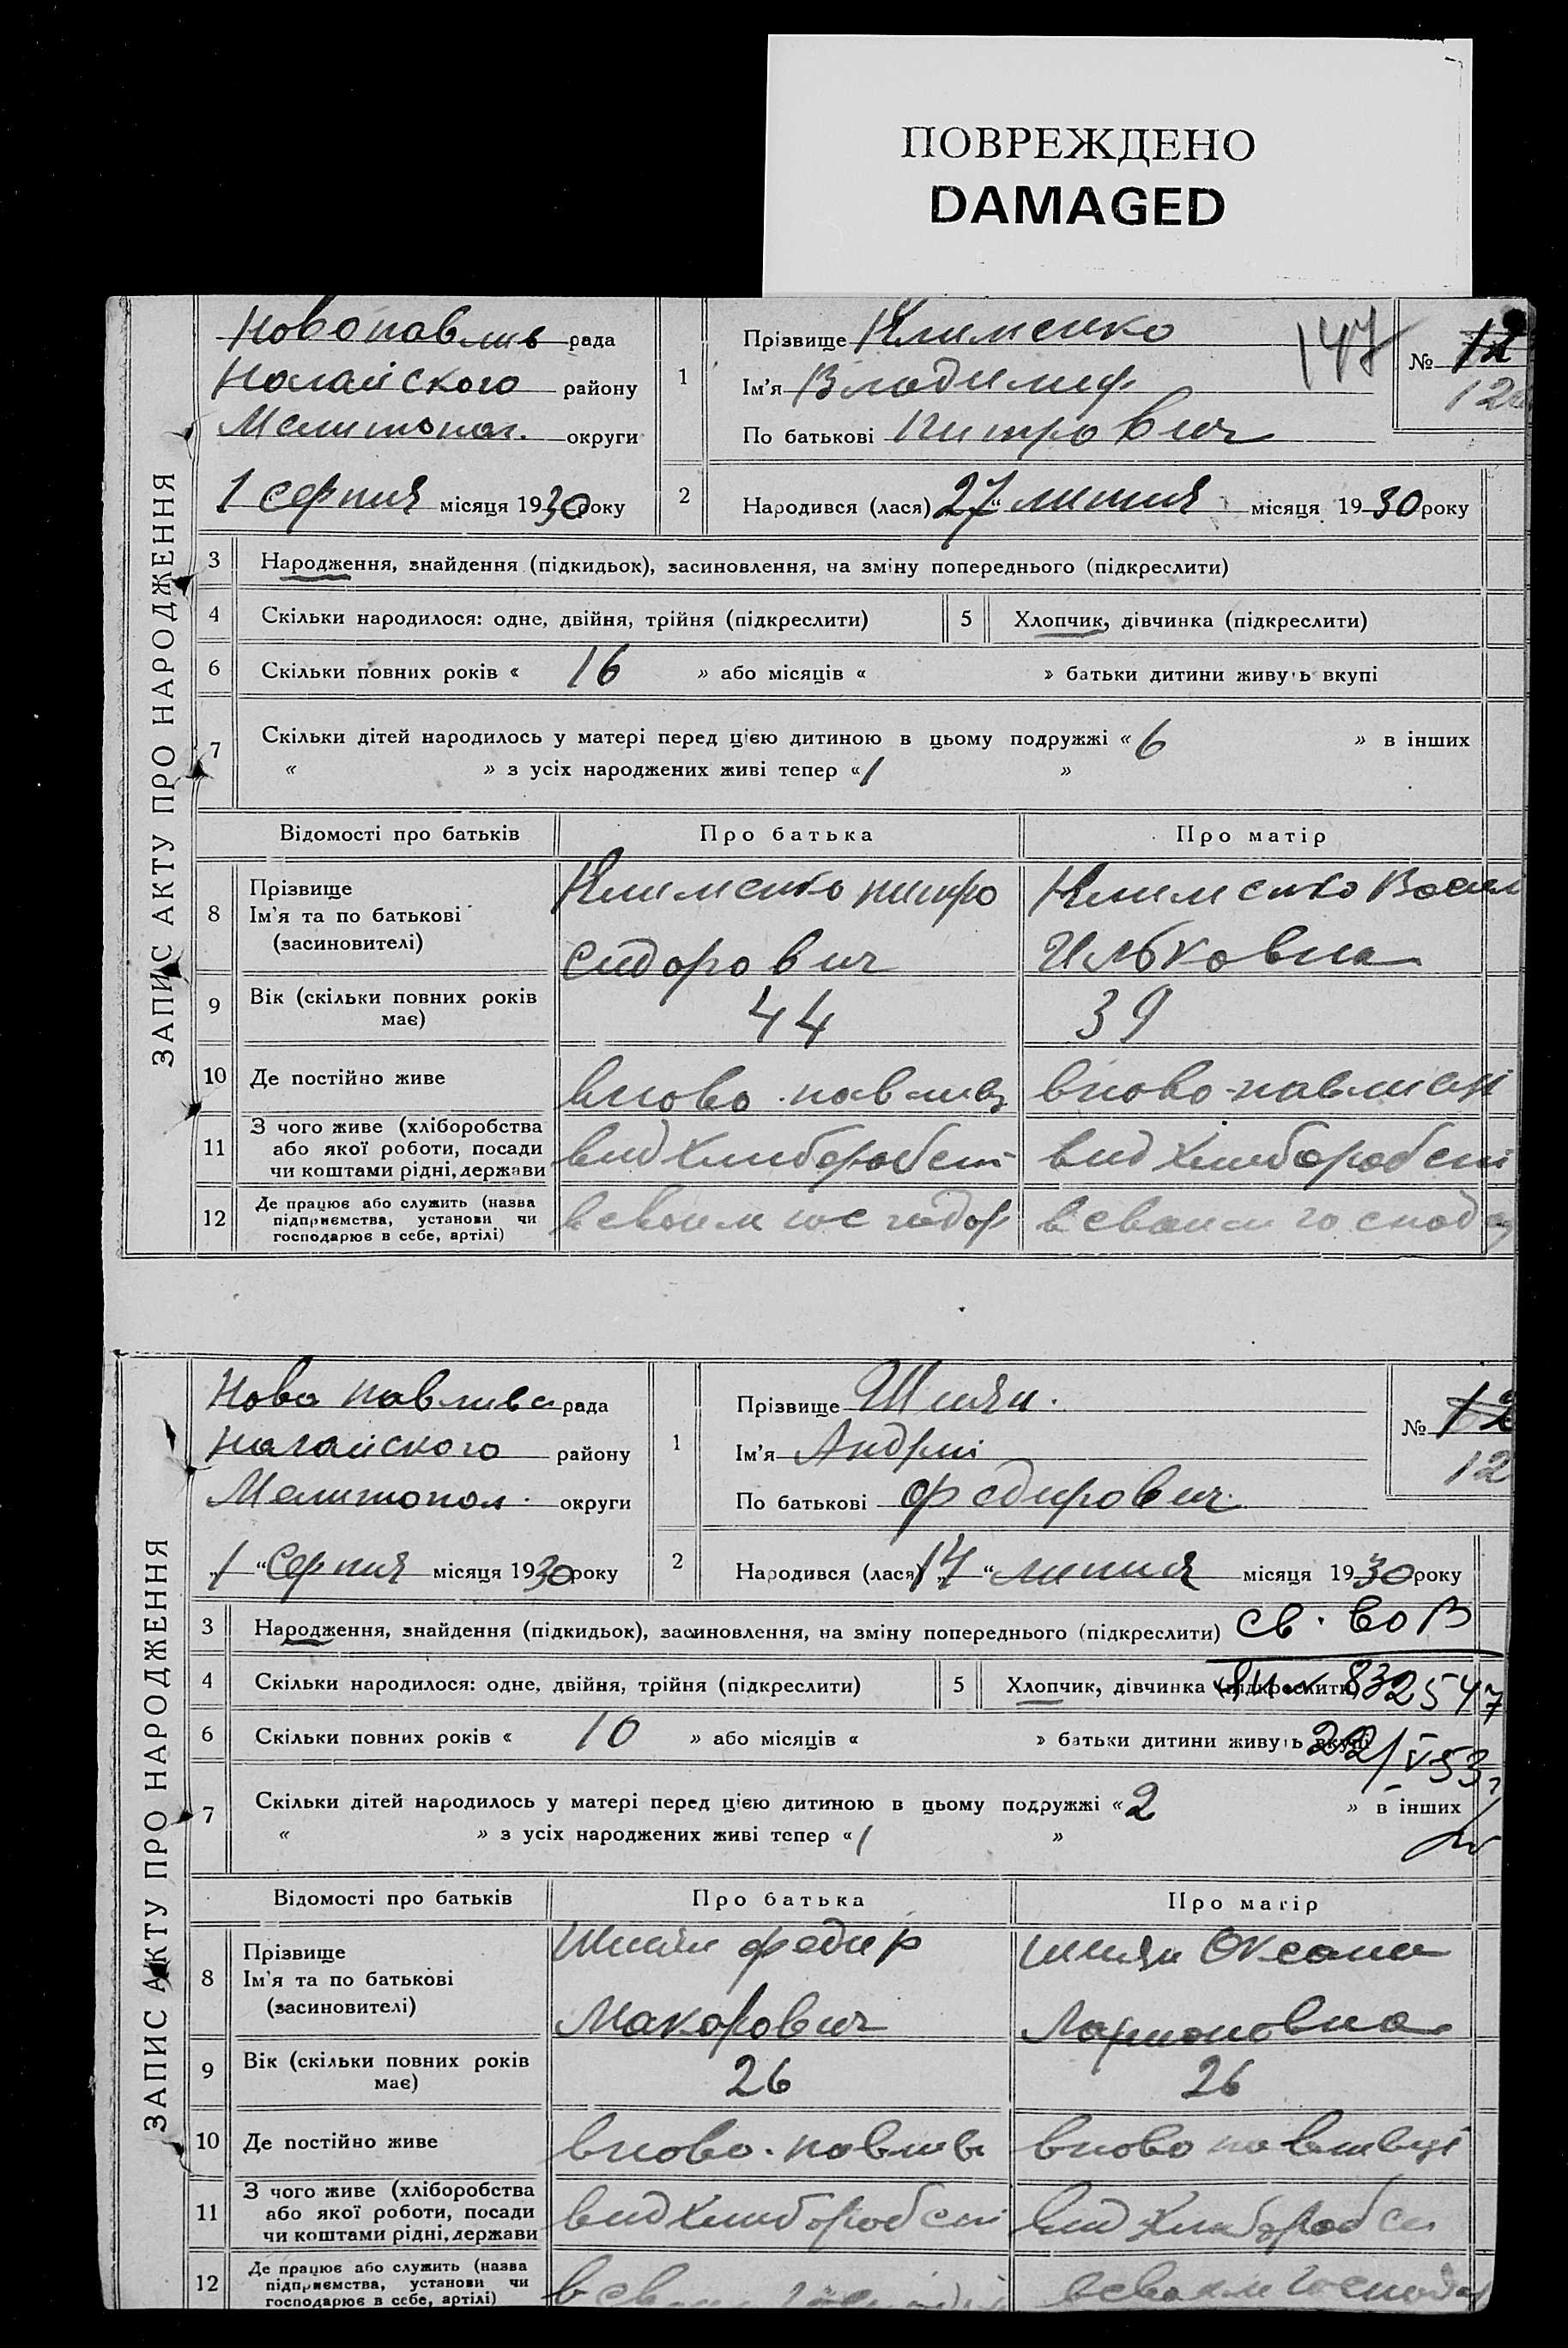 ПОВРЕЖДЕНО
DAMAGED
ЗАПИС АКТУ ПРО НАРОДЖЕННЯ
Новопавлив рада
Ногайского району
Мелитопол. округи
1 серпня місяця 1930 року
1
Прізвище Клименко
Ім'я Владимир
По батькові Питрович
147
№ 12
12
2
Народився (лася) 27 липня місяця 1930 року
3 Народження, знайдення (підкидьок), засиновлення, на зміну попереднього (підкреслити)
4 Скільки народилося: одне, двійня, трійня (підкреслити) 5 Хлопчик, дівчинка (підкреслити)
6 Скільки повних років « 16 » або місяців « » батьки дитини живуть вкупі
7 Скільки дітей народилось у матері перед цією дитиною в цьому подружжі « 6 » в інших
« » з усіх народжених живі тепер « 1 »
Відомості про батьків Про батька Про матір
8 Прізвище
Ім'я та по батькові
(засиновителі)
Клименко питро
Сидорович
Клименко Васил
Ильковна
9 Вік (скільки повних років має) 44 39
10 Де постійно живе вново-павливц вново-павливці
11 З чого живе (хліборобства
або якої роботи, посади
чи коштами рідні, держави
вид хлиборобст вид хлиборобст
12 Де працює або служить (назва
підприємства, установи чи
господарює в себе, артілі)
в своим господар в своим господар
ЗАПИС АКТУ ПРО НАРОДЖЕННЯ
Ново павливс рада
Нагайского району
Мелитопол. округи
„1“ Серпня місяця 1930 року
1
Прізвище Шиян.
Ім'я Андрий
По батькові Федирович
№ 12
12
2
Народився (лася) „14“ липня місяця 1930 року
3 Народження, знайдення (підкидьок), засиновлення, на зміну попереднього (підкреслити) св.
4 Скільки народилося: одне, двійня, трійня (підкреслити) 5 Хлопчик, дівчинка (підкреслити) 832547
6 Скільки повних років « 10 » або місяців « » батьки дитини живуть вкупі 22/V 53г
7 Скільки дітей народилось у матері перед цією дитиною в цьому подружжі « 2 » в інших
« » з усіх народжених живі тепер « 1 »
Відомості про батьків Про батька Про матір
8 Прізвище
Ім'я та по батькові
(засиновителі)
Шиян федир
Макарович
Шиян Оксана
Ларионовна
9 Вік (скільки повних років має) 26 26
10 Де постійно живе вново-павливц вново павливці
11 З чого живе (хліборобства
або якої роботи, посади
чи коштами рідні, держави
вид хлиборобст вид хлиборобст
12 Де працює або служить (назва
підприємства, установи чи
господарює в себе, артілі)
в своим господар